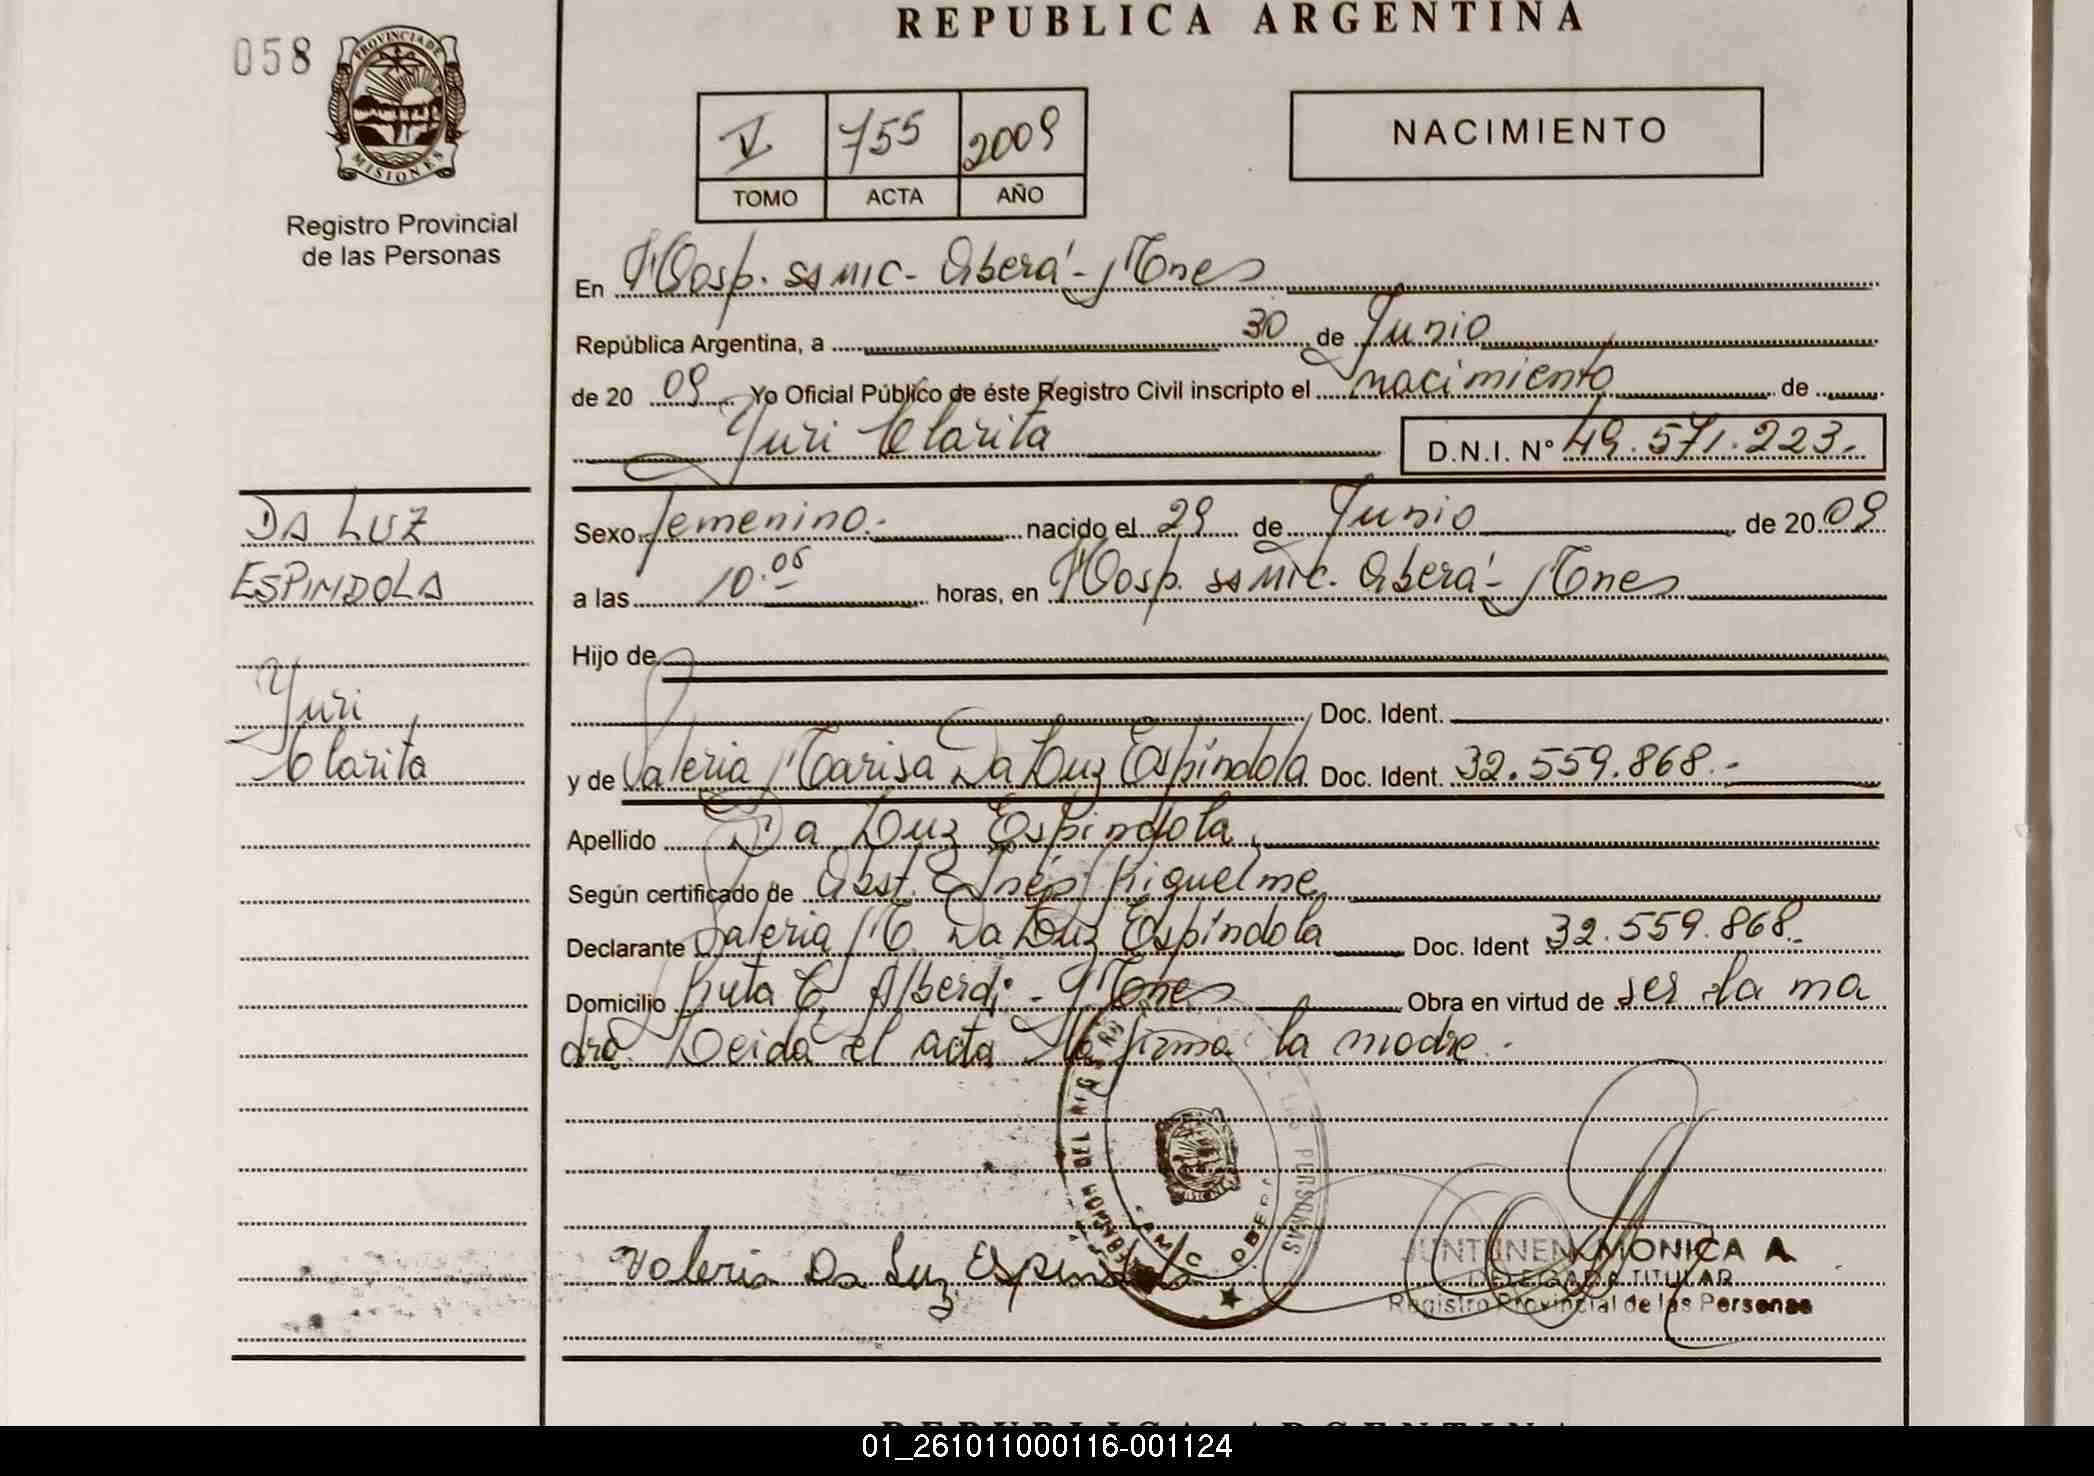 REPUBLICA ARGENTINA
058
PROVINCIA DE
MISIONES
Registro Provincial
de las Personas
V 755 2009
TOMO ACTA AÑO
NACIMIENTO
En Hosp. SAMIC - Oberá - Mnes
República Argentina, a 30 de Junio
de 20 09 Yo Oficial Público de éste Registro Civil inscripto el nacimiento de
Yuri Clarita D.N.I. N° 49.571.223.-
DA LUZ
ESPINDOLA
Yuri
Clarita
Sexo femenino.- nacido el 29 de Junio de 20 09
a las 10.05 horas, en Hosp. SAMIC. Oberá - Mnes
Hijo de
Doc. Ident.
y de Valeria Marisa Da Luz Espíndola Doc. Ident. 32.559.868.-
Apellido Da Luz Espindola
Según certificado de Obst. Inés Riquelme
Declarante Valeria M. Da Luz Espíndola Doc. Ident 32.559.868.
Domicilio Ruta C. Alberdi - Mnes Obra en virtud de ser la ma
dre. Leida el acta la firma la madre.-
DEL
PERSONAS
Valeria Da Luz Espindola
JUNTUNEN MONICA A.
DELEGADA TITULAR
Registro Provincial de las Personas
REPUBLICA ARGENTINA
01_261011000116-001124